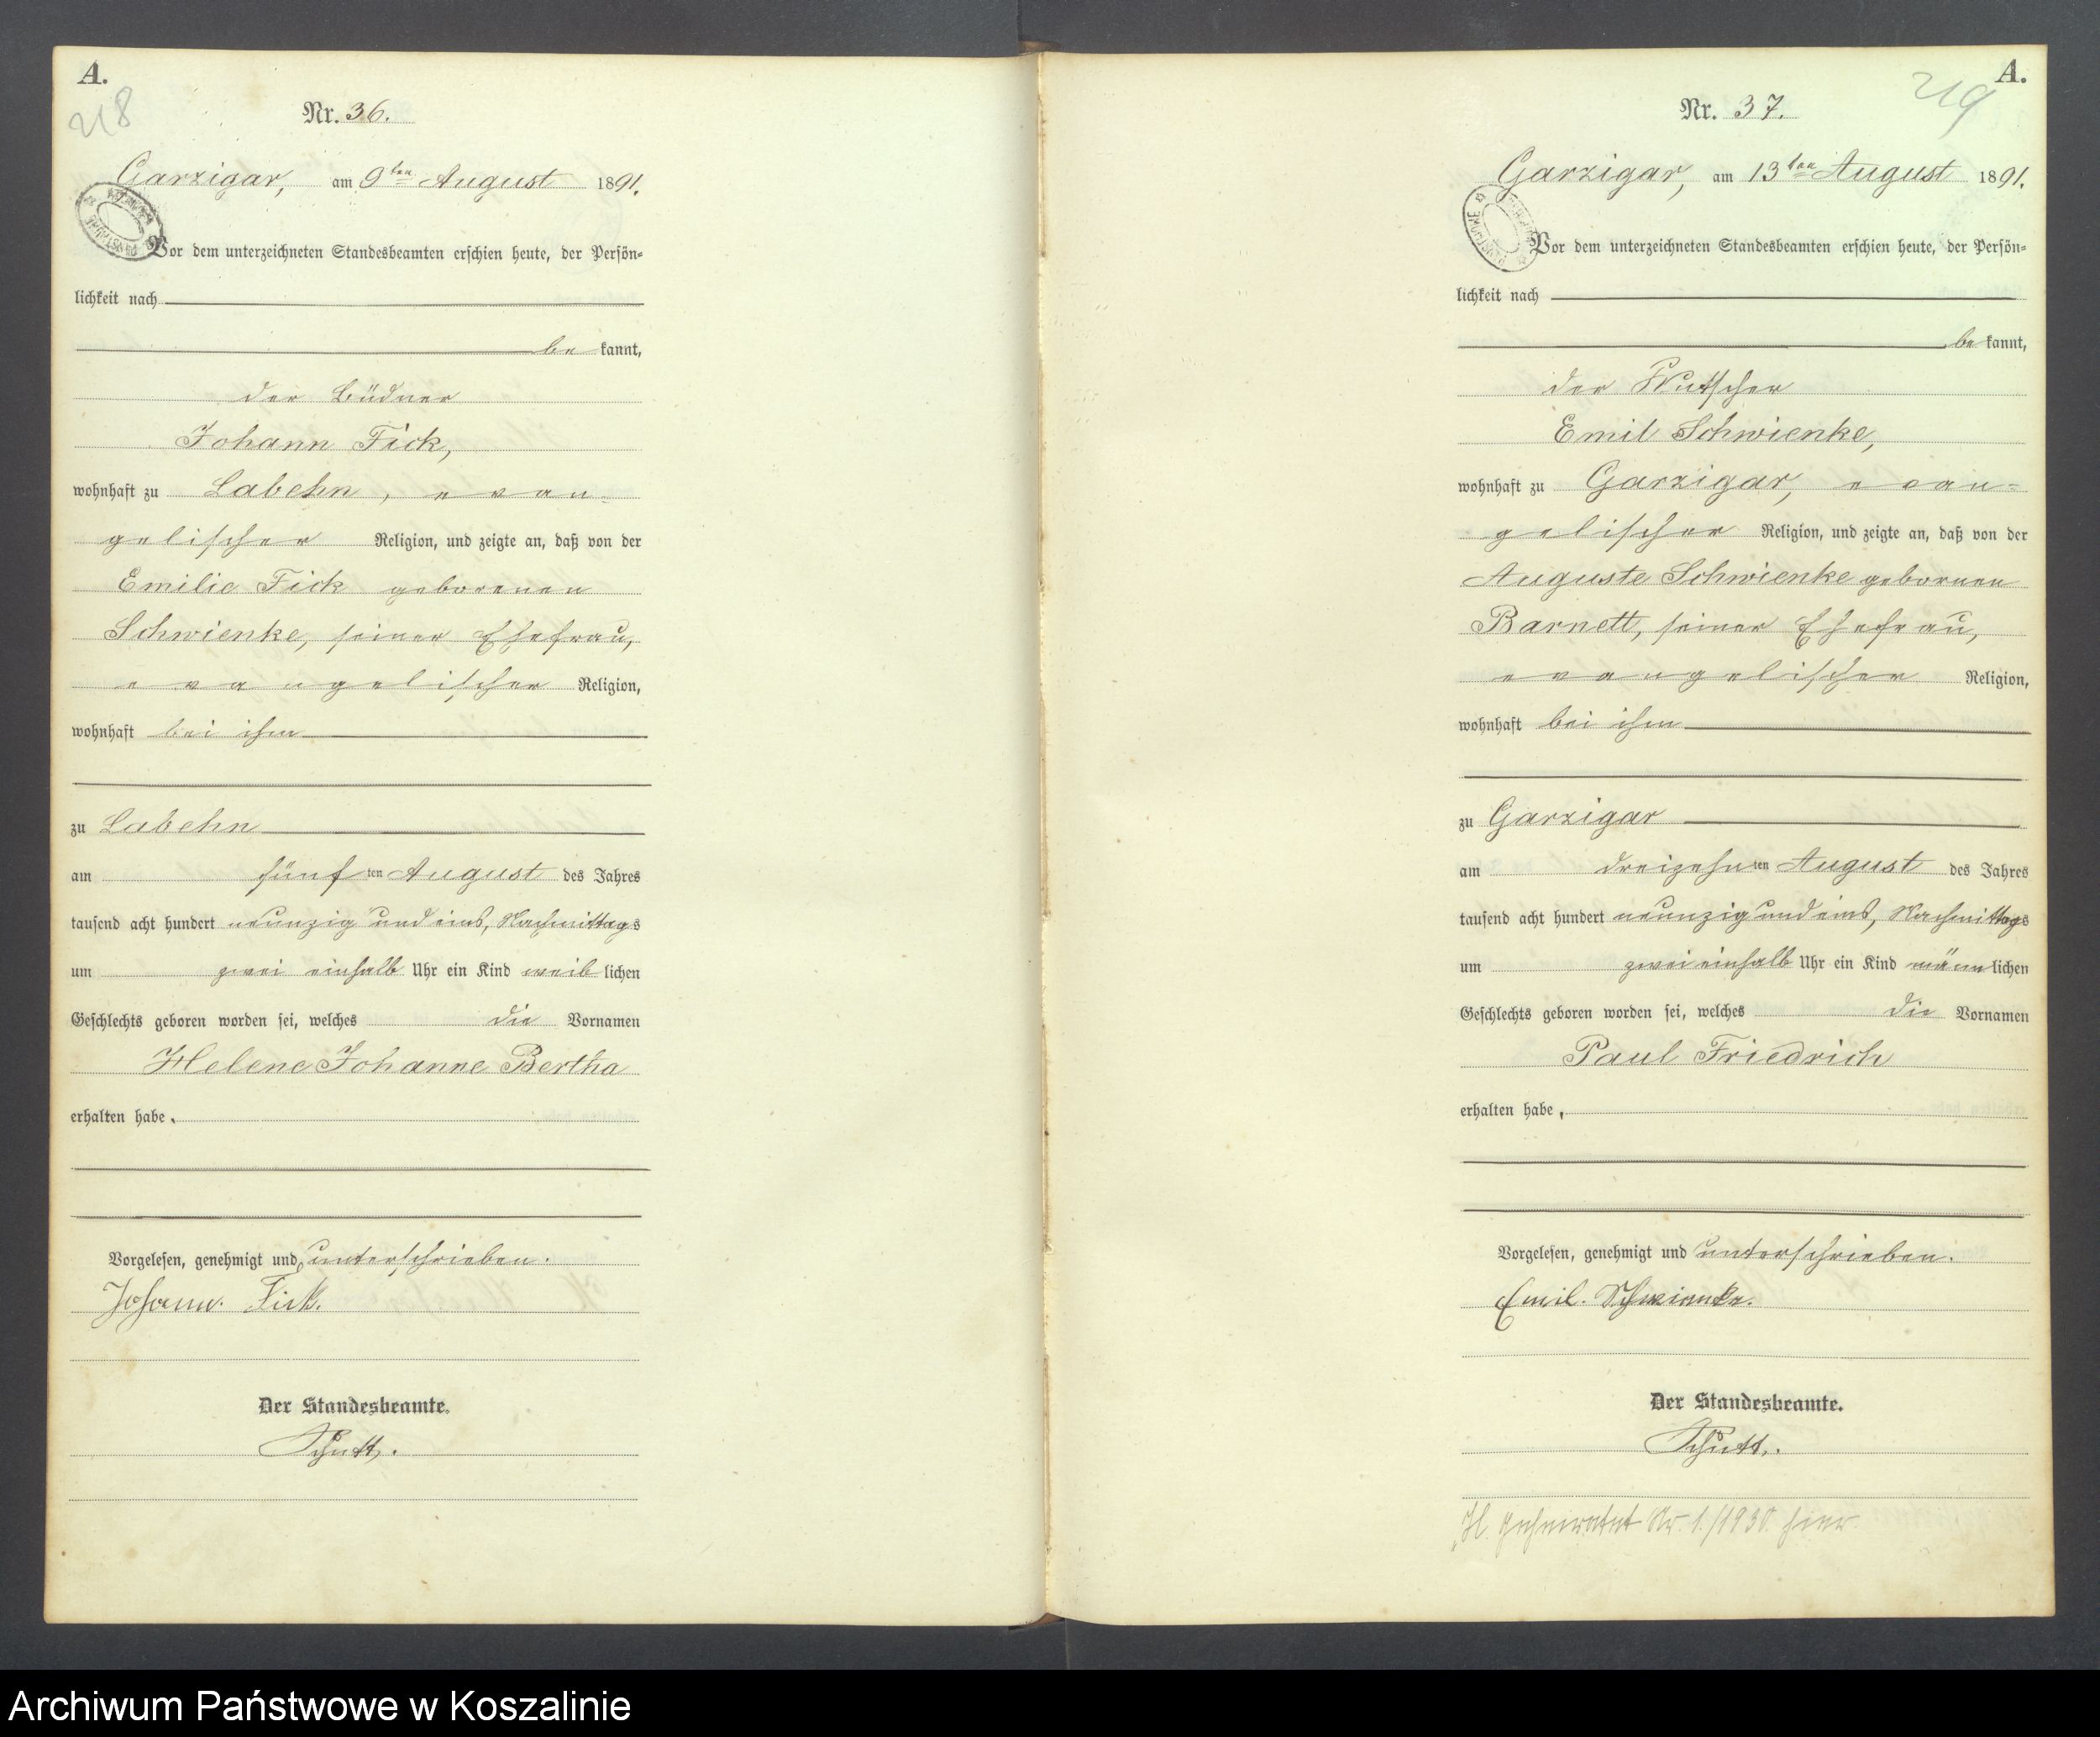 A.
218
Nr. 36.
Garzigar, am 9ten August 1891.
Vor dem unterzeichneten Standesbeamten erschien heute, der Persön-
lichkeit nach
be kannt,
der Büdner
Johann Fick,
wohnhaft zu Labehn, evan-
gelischer Religion, und zeigte an, daß von der
Emilie Fick geborenen
Schwienke, seiner Ehefrau,
evangelischer Religion,
wohnhaft bei ihm
zu Labehn
am fünf ten August des Jahres
tausend acht hundert neunzig und eins, Nachmittags
um zwei einhalb Uhr ein Kind weib lichen
Geschlechts geboren worden sei, welches die Vornamen
Helene Johanne Bertha
erhalten habe.
Vorgelesen, genehmigt und unterschrieben.
Johann. Fick.
Der Standesbeamte.
Schutt.
A.
219
Nr. 37.
Garzigar, am 13ten August 1891.
Vor dem unterzeichneten Standesbeamten erschien heute, der Persön-
lichkeit nach
be kannt,
der Kutscher
Emil Schwienke,
wohnhaft zu Garzigar, evan-
gelischer Religion, und zeigte an, daß von der
Auguste Schwienke gebornen
Barnett, seiner Ehefrau,
evangelischer Religion,
wohnhaft bei ihm
zu Garzigar
am dreizehn ten August des Jahres
tausend acht hundert neunzig und eins, Nachmittags
um zwei einhalb Uhr ein Kind männ lichen
Geschlechts geboren worden sei, welches die Vornamen
Paul Friedrich
erhalten habe,
Vorgelesen, genehmigt und unterschrieben.
Emil. Schwienke.
Der Standesbeamte.
Schutt.
geheiratet Nr. 1./1930. hier
Archiwum Państwowe w Koszalinie